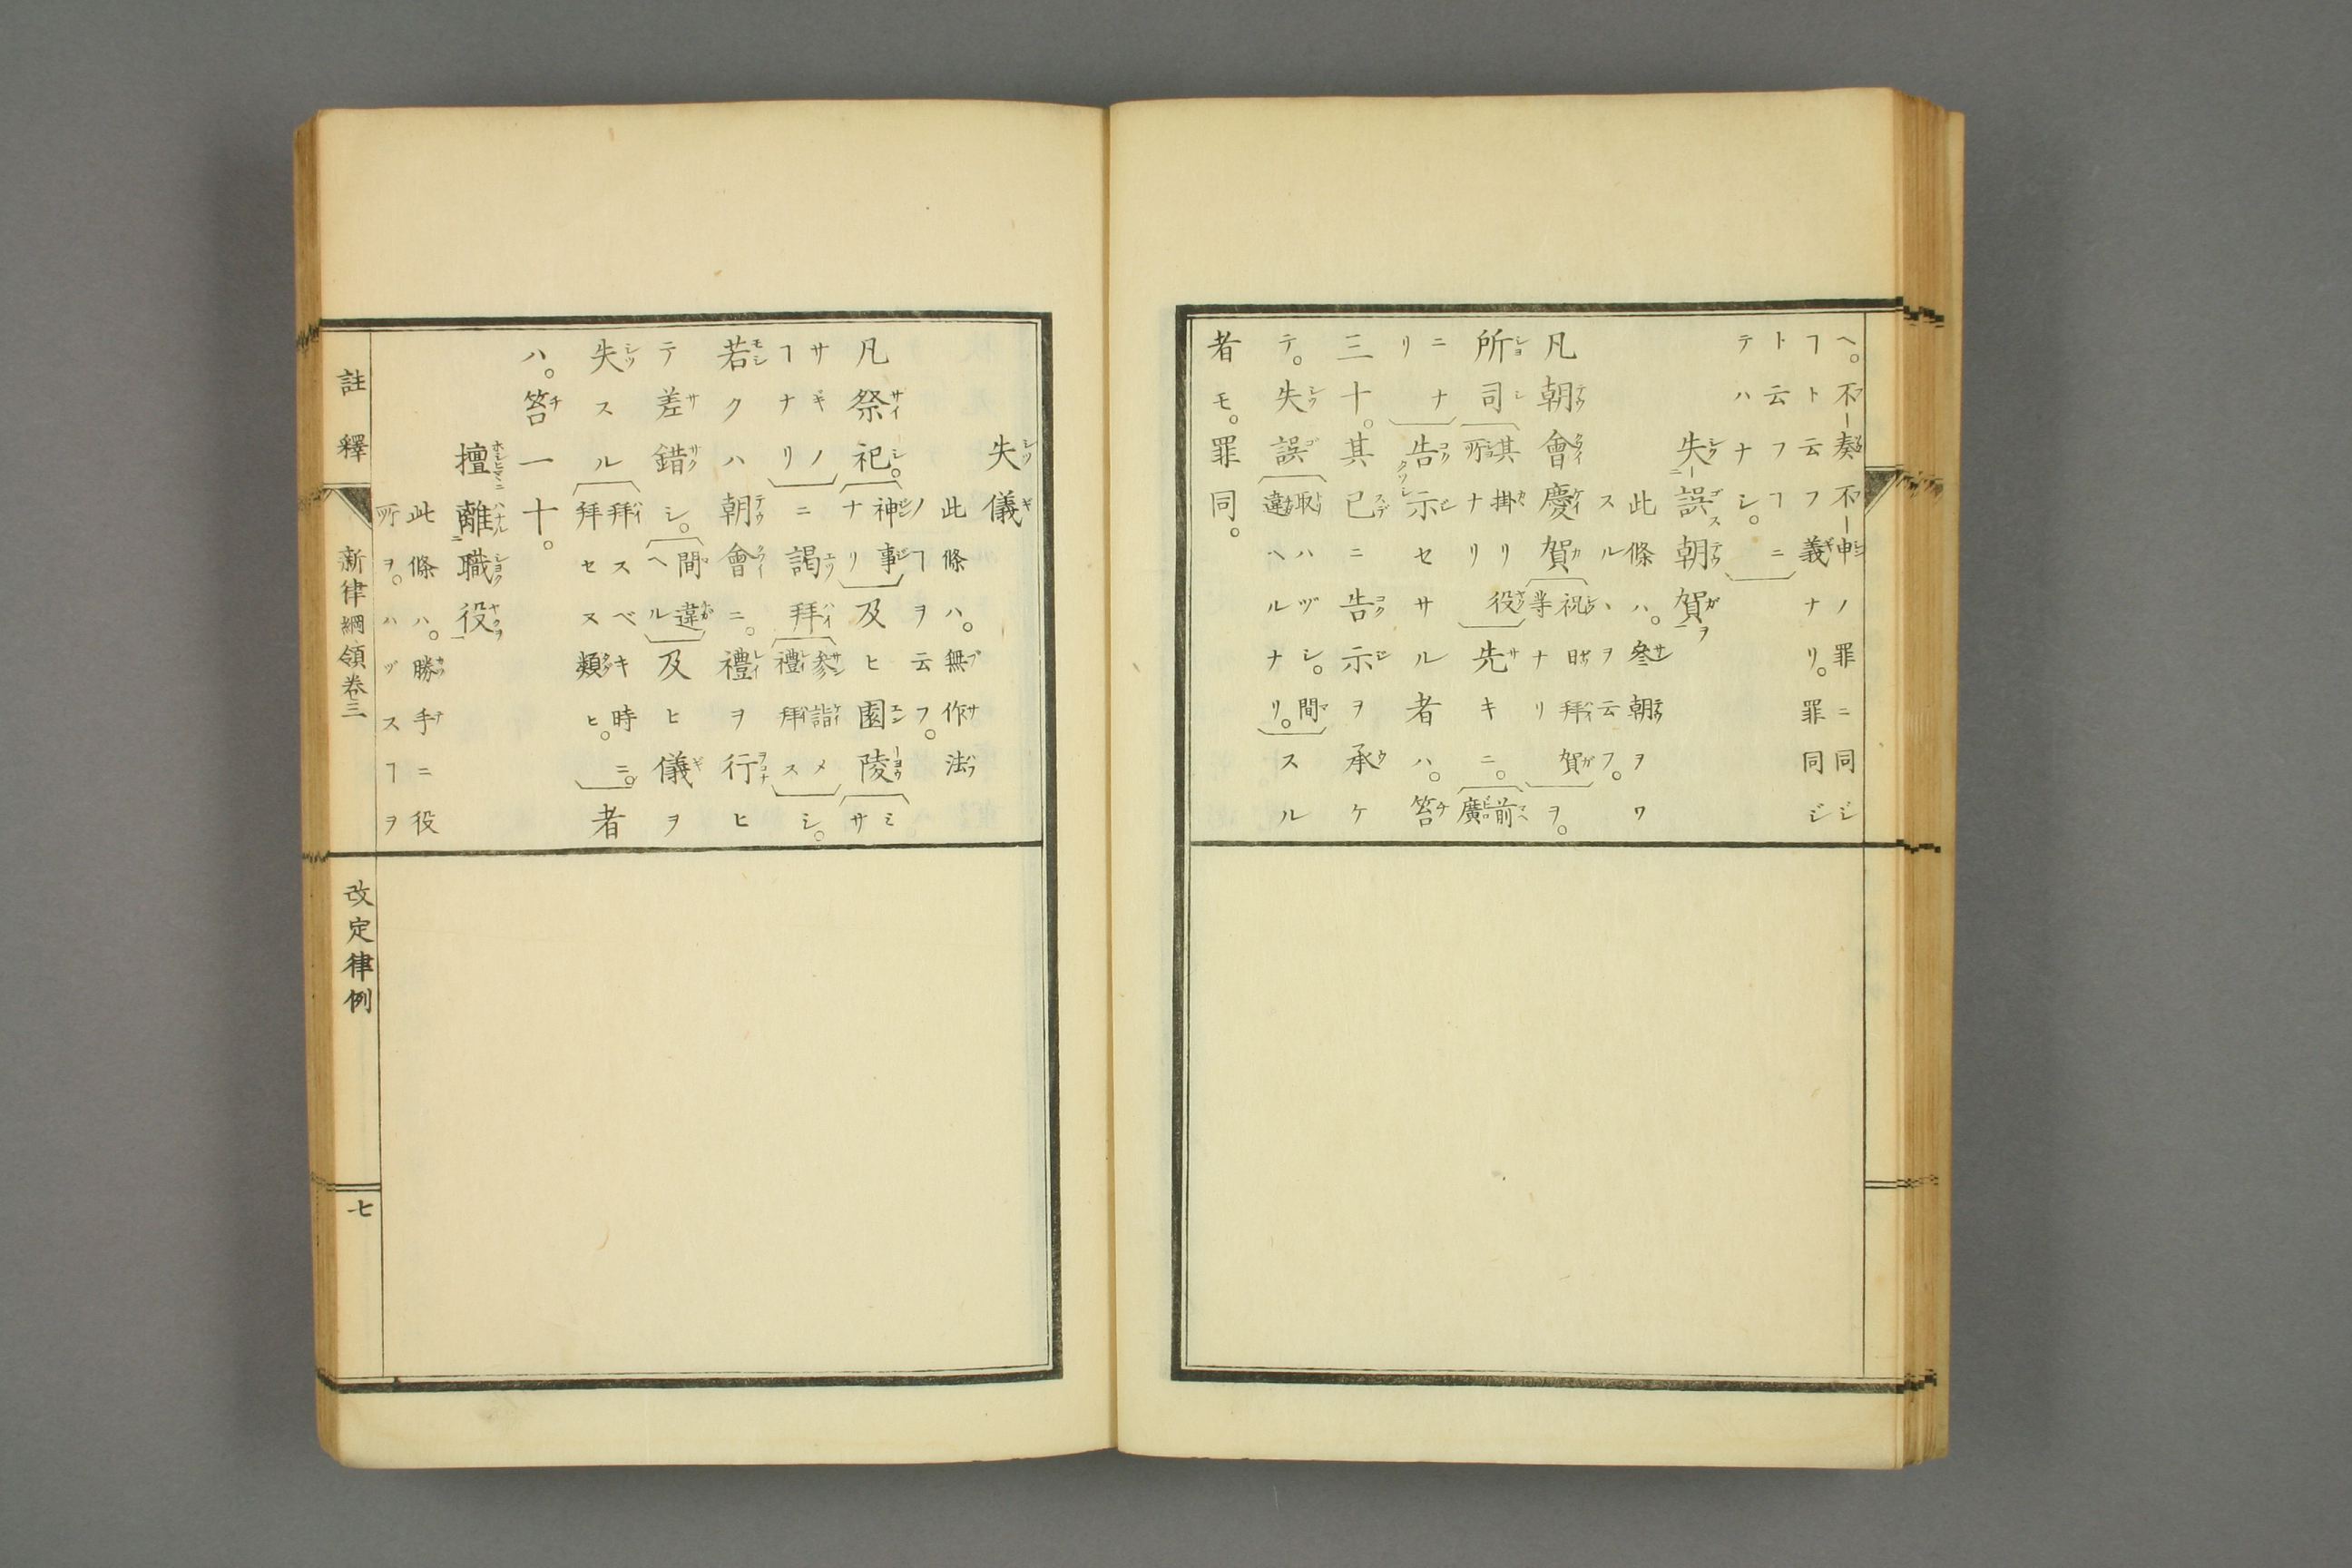 ヘ。不奏不申ノ罪ニ同シジ
ヿト云フ義ナリ。罪同ジ
ト云フヿニ
テハナシ。
失誤朝賀
此條ハ。參朝ヲワ
スルヽヲ云フ。
凡朝會慶賀祝日拜賀等ナリヲ。
所司其掛リ役所ナリ先キニ。前廣
ニナリ告示セサル者ハ。笞
三十。其已ニ告示ヲ承ケ
テ。失誤取ハヅシ。間違ヘルナリ。スル
者モ。罪同。
失儀
此條ハ。無作法
ノヿヲ云フ。
凡祭祀。神事ナリ及ヒ園陵ミサ
サギノヿナリニ謁拜參詣メ禮拜スシ。
若クハ朝會ニ。禮ヲ行ヒ
テ差錯シ。間違ヘル及ヒ儀ヲ
失スル拜スベキ時ニ。拜セス類ヒ。者
ハ。笞一十。
擅離職役
此條ハ。勝手ニ役
所ヲ。ハヅスヿヲ
註釋
新律綱領卷三
改定律例
七